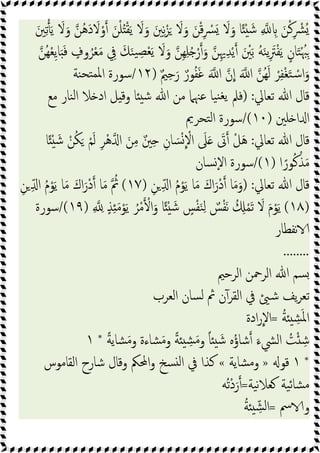 يُشْرِكْنَ بِاللَّهِ شَيْئًا وَلَا يَسْرِقْنَ وَلَا يَزْنِينَ وَلَا يَقْتُلْنَ أَوْلَادَهُنَّ وَلَا يَأْتِينَ
بِبُهْتَانٍ يَفْتَرِينَهُ بَيْنَ أَيْدِيهِنَّ وَأَرْجُلِهِنَّ وَلَا يَعْصِينَكَ فِي مَعْرُوفٍ فَبَايِعْهُنَّ
وَاسْتَغْفِرْ لَهُنَّ اللَّهَ إِنَّ اللَّهَ غَفُورٌ رَحِيمٌ (١٢)/سورة الممتحنة
قال الله تعالي: (فلم يغنيا عنهما من الله شيئا وقيل ادخلا النار مع
الداخلين (١٠)/سورة التحريم
قال الله تعالي: هَلْ أَتَى عَلَى الْإِنْسَانِ حِينٌ مِنَ الدَّهْرِ لَمْ يَكُنْ شَيْئًا
مَذْكُورًا (١)/سورة الإنسان
قال الله تعالي: (وَمَا أَدْرَاكَ مَا يَوْمُ الدِّينِ (١٧) ثُمَّ مَا أَدْرَاكَ مَا يَوْمُ الدِّينِ
(١٨) يَوْمَ لَا تَمْلِكُ نَفْسٌ لِنَفْسٍ شَيْئًا وَالْأَمْرُ يَوْمَئِذٍ لِلَّهِ (١٩)/سورة
الانفطار
........
بسم الله الرحمن الرحيم
تعريف شيئ في القرآن ثم لسان العرب
المَشِيئةُ =الإرادة
شِئْتُ الشيءَ أَشاؤُه شَيئاً ومَشِيئةً ومَشاءةً ومَشايةً * ١
* ١ قوله « ومشاية » كذا في النسخ والمحكم وقال شارح القاموس
مشائية كعلانية=أَرَدْتُه
والاسم =الشِّيئةُ